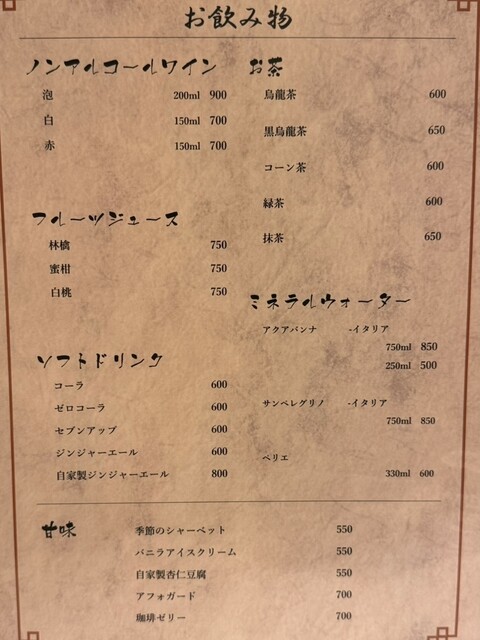 お飲み物
ノンアルコールワイン
泡 200ml 900
白 150ml 700
赤 150ml 700
フルーツジュース
林檎 750
蜜柑 750
白桃 750
ソフトドリンク
コーラ 600
ゼロコーラ 600
セブンアップ 600
ジンジャーエール 600
自家製ジンジャーエール 800
お茶
烏龍茶 600
黒烏龍茶 650
コーン茶 600
緑茶 600
抹茶 650
ミネラルウォーター
アクアパンナ -イタリア
750ml 850
250ml 500
サンペレグリノ -イタリア
750ml 850
ペリエ
330ml 600
甘味
季節のシャーベット 550
バニラアイスクリーム 550
自家製杏仁豆腐 550
アフォガード 700
珈琲ゼリー 700